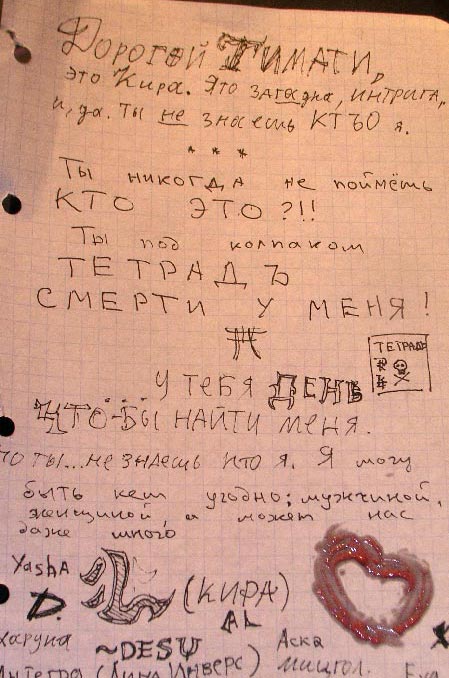 Дорогой Тимати,
это Кира. Это загадка, интрига,
и, да. ты не знаешь КТЪО я.
* * *
Ты никогда не поймёшь
КТО ЭТО ?!!
Ты под колпаком
ТЕТРАДЪ
СМЕРТИ У МЕНЯ!
ТЕТРАДЬ
У тебя ДЕНЬ
ЧТО-БЫ НАЙТИ меня.
но ты... не знаешь кто я. Я могу
быть кем угодно: мужчиной,
женщиной, а может нас
даже много
YashA
L (КИРА)
D.
AL
Харуна
~DESU
Аска
Интегра (Лина Инверс)